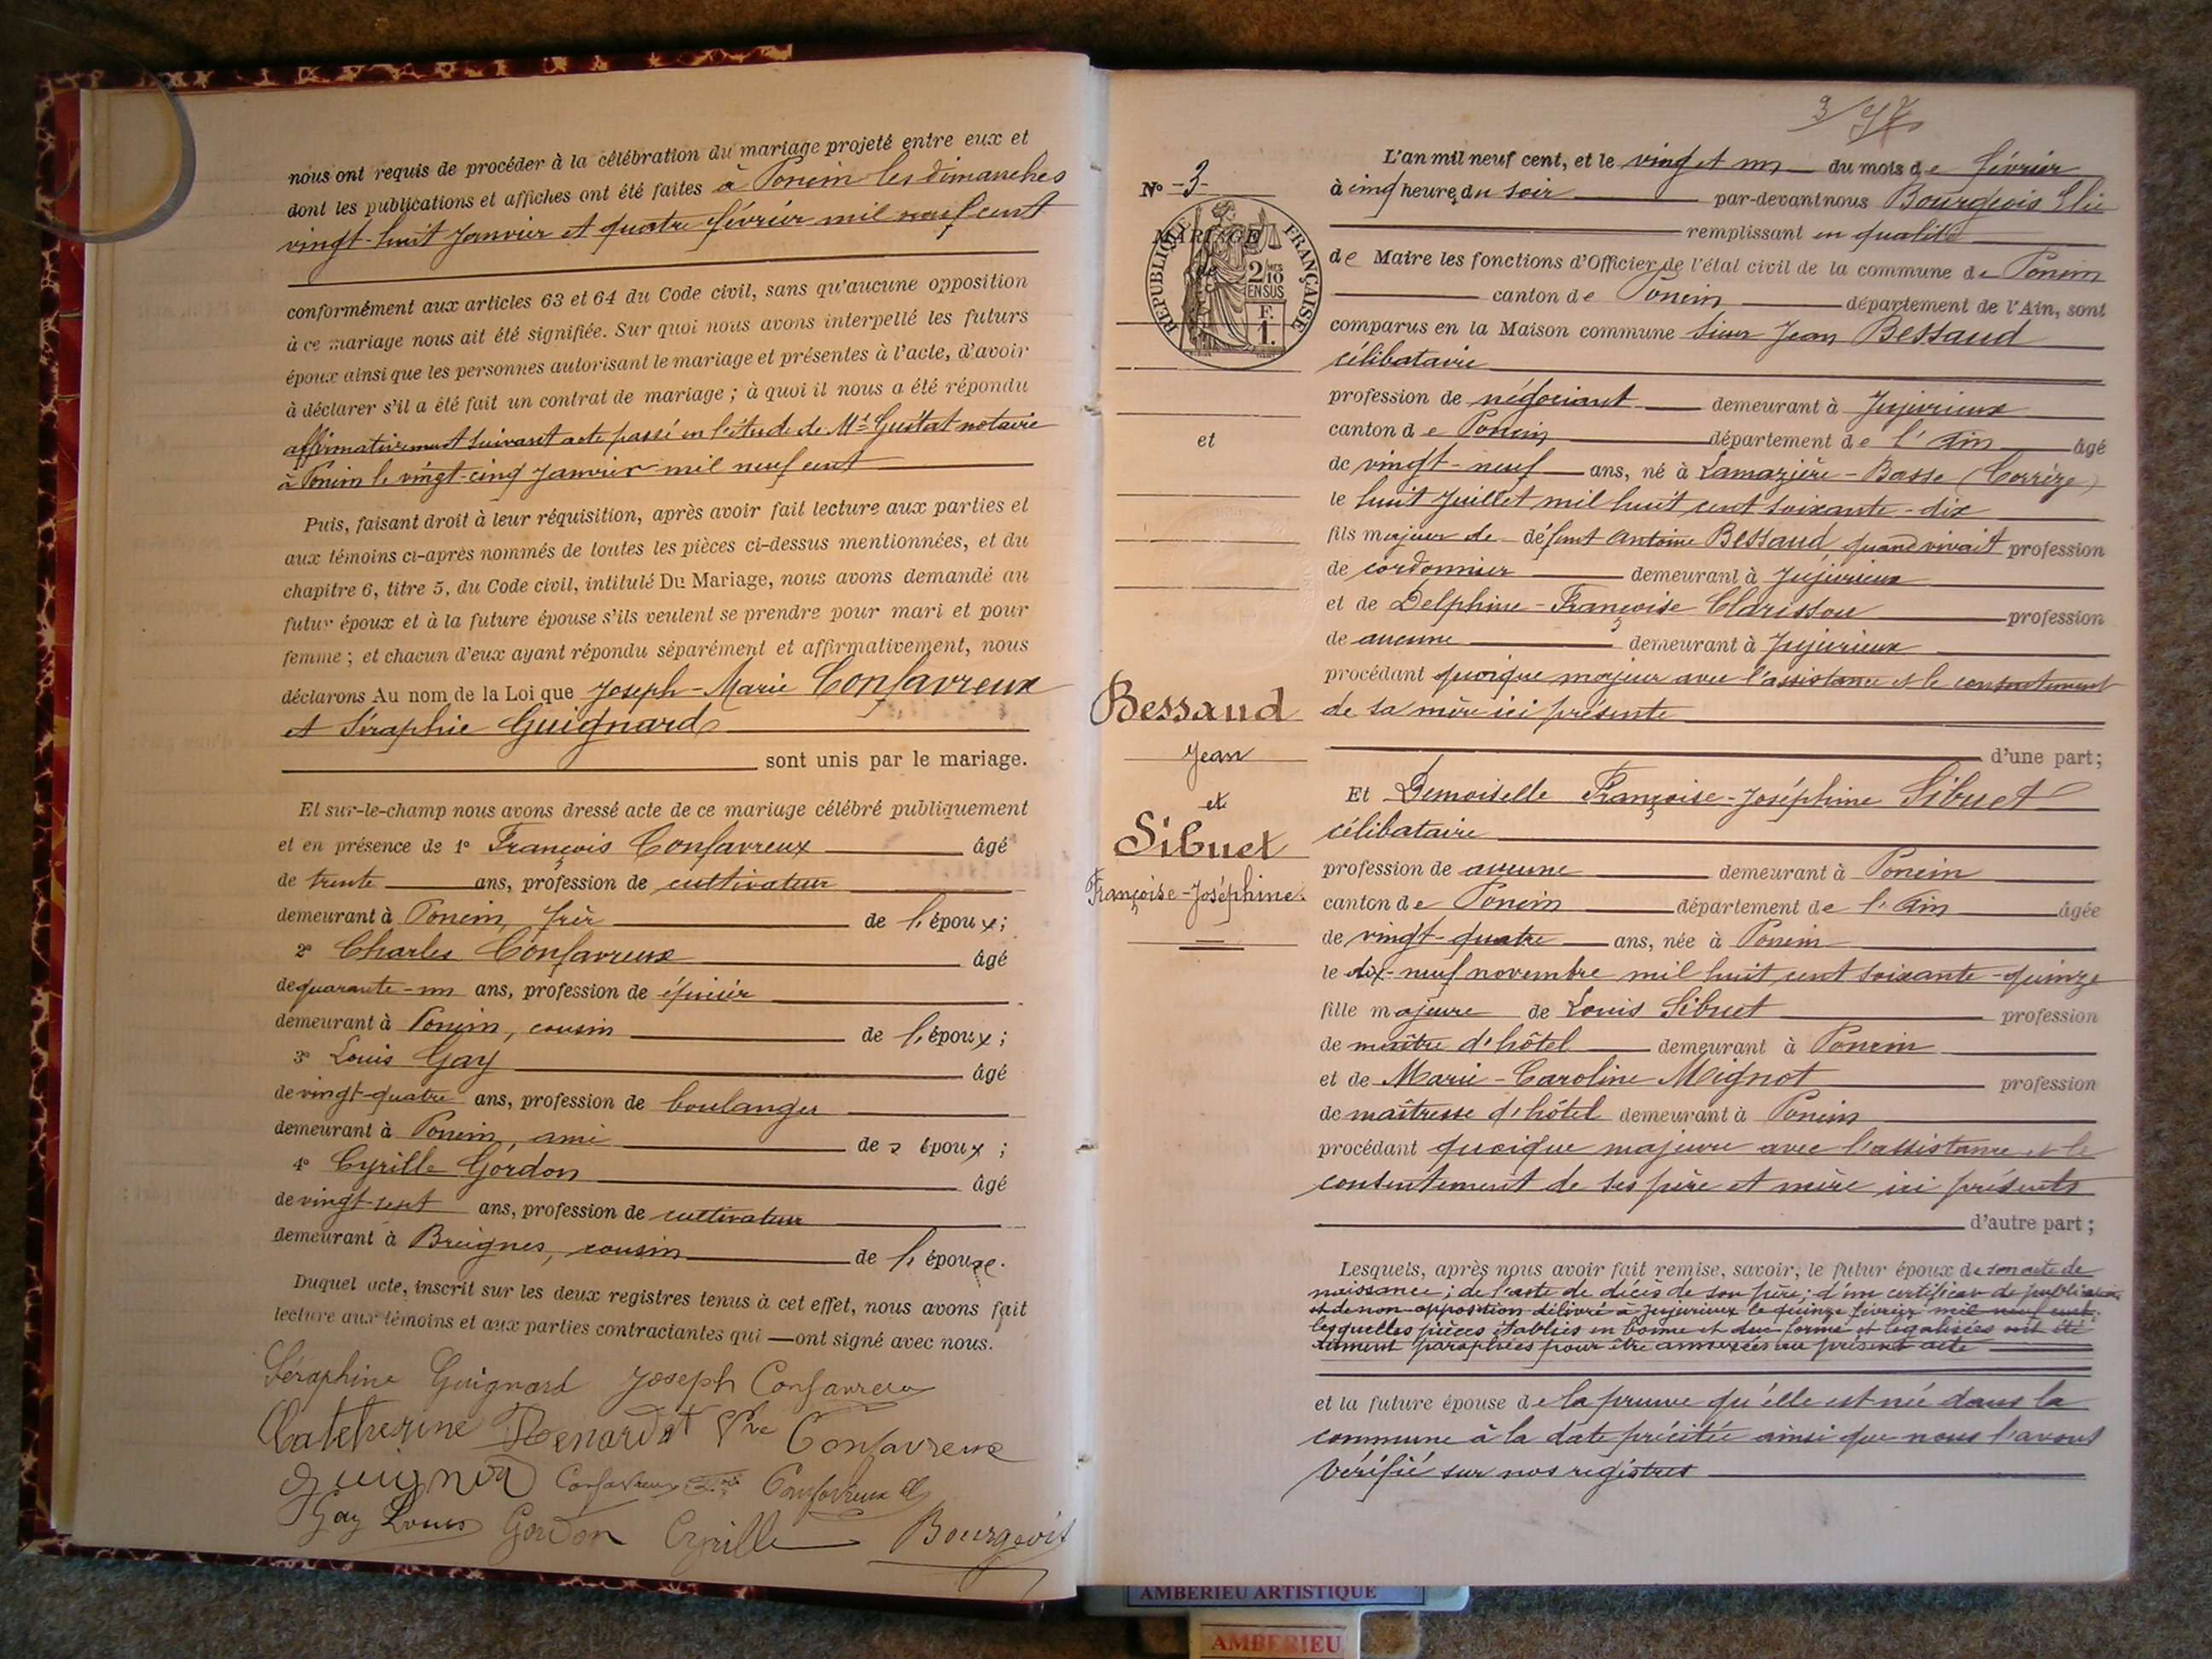 nous ont requis de procéder à la célébration du mariage projeté entre eux et
dont les publications et affiches ont été faites à Poncin les dimanches
vingt-huit Janvier et quatre février mil neuf cent
conformément aux articles 63 et 64 du Code civil, sans qu'aucune opposition
à ce mariage nous ait été signifiée. Sur quoi nous avons interpellé les futurs
époux ainsi que les personnes autorisant le mariage et présentes à l'acte, d'avoir
à déclarer s'il a été fait un contrat de mariage ; à quoi il nous a été répondu
affirmativement suivant acte passé en l'étude de Me notaire
à Poncin le vingt-cinq Janvier mil neuf cent
Puis, faisant droit à leur réquisition, après avoir fait lecture aux parties et
aux témoins ci-après nommés de toutes les pièces ci-dessus mentionnées, et du
chapitre 6, titre 5, du Code civil, intitulé Du Mariage, nous avons demandé au
futur époux et à la future épouse s'ils veulent se prendre pour mari et pour
femme ; et chacun d'eux ayant répondu séparément et affirmativement, nous
déclarons Au nom de la Loi que Joseph-Marie Confavreux
et Séraphie Guignard
sont unis par le mariage.
Et sur-le-champ nous avons dressé acte de ce mariage célébré publiquement
et en présence de 1° François Confavreux âgé
de trente ans, profession de cultivateur
demeurant à Poncin, frèr de l'époux ;
2° Charles Confavreux âgé
de quarante-un ans, profession de épicier
demeurant à Poncin, cousin de l'époux ;
3° Louis Gay âgé
de vingt-quatre ans, profession de boulanger
demeurant à Poncin, ami de s époux ;
4° Cyrille Gordon âgé
de vingt-sept ans, profession de cultivateur
demeurant à cousin de l'épouse.
Duquel acte, inscrit sur les deux registres tenus à cet effet, nous avons fait
lecture aux témoins et aux parties contractantes qui ont signé avec nous.
Séraphine Guignard Joseph Confavreux
Catcherine Renardat Vve Confavreux
Guignard Confavreux Confavreux
Gay Louis Gordon Cyrille Bourgeois
3
N° 3
MARIAGE
RÉPUBLIQUE FRANÇAISE
2/10 EN SUS
F. 1.
et
Bessaud
Jean
et
Sibuet
Françoise-Joséphine
L'an mil neuf cent, et le vingt et un du mois de février
à cinq heures du soir par-devant nous Bourgeois Elie
remplissant en qualité
de Maire les fonctions d'Officier de l'état civil de la commune de Poncin
canton de Poncin département de l'Ain, sont
comparus en la Maison commune Sieur Jean Bessaud
célibataire
profession de négociant demeurant à Jujurieux
canton de Poncin département de l'Ain âgé
de vingt-neuf ans, né à Lamazière-Basse (Corrèze)
le huit Juillet mil huit cent soixante-dix
fils majeur de défunt Antoine Bessaud quand vivait profession
de cordonnier demeurant à Jujurieux
et de Delphine-Françoise Clarissou profession
de aucune demeurant à Jujurieux
procédant quoique majeur avec l'assistance et le consentement
de sa mère ici présente
d'une part ;
Et Demoiselle Françoise-Joséphine Sibuet
célibataire
profession de aucune demeurant à Poncin
canton de Poncin département de l'Ain âgée
de vingt-quatre ans, née à Poncin
le dix-neuf novembre mil huit cent soixante-quinze
fille majeure de Louis Sibuet profession
de maître d'hôtel demeurant à Poncin
et de Marie-Caroline Mignot profession
de maîtresse d'hôtel demeurant à Poncin
procédant quoique majeure avec l'assistance et le
consentement de ses père et mère ici présents
d'autre part ;
Lesquels, après nous avoir fait remise, savoir, le futur époux de son acte de
naissance ; de l'acte de décès de son père ; d'un certificat de publication
et de non-opposition délivré à Jujurieux le quinze février mil neuf cent.
lesquelles pièces établies en bonne et due forme et légalisées ont été
paraphées pour être annexées au présent acte
et la future épouse de la preuve qu'elle est née dans la
commune à la date précitée ainsi que nous l'avons
vérifié sur nos registres
AMBERIEU ARTISTIQUE
AMBERIEU